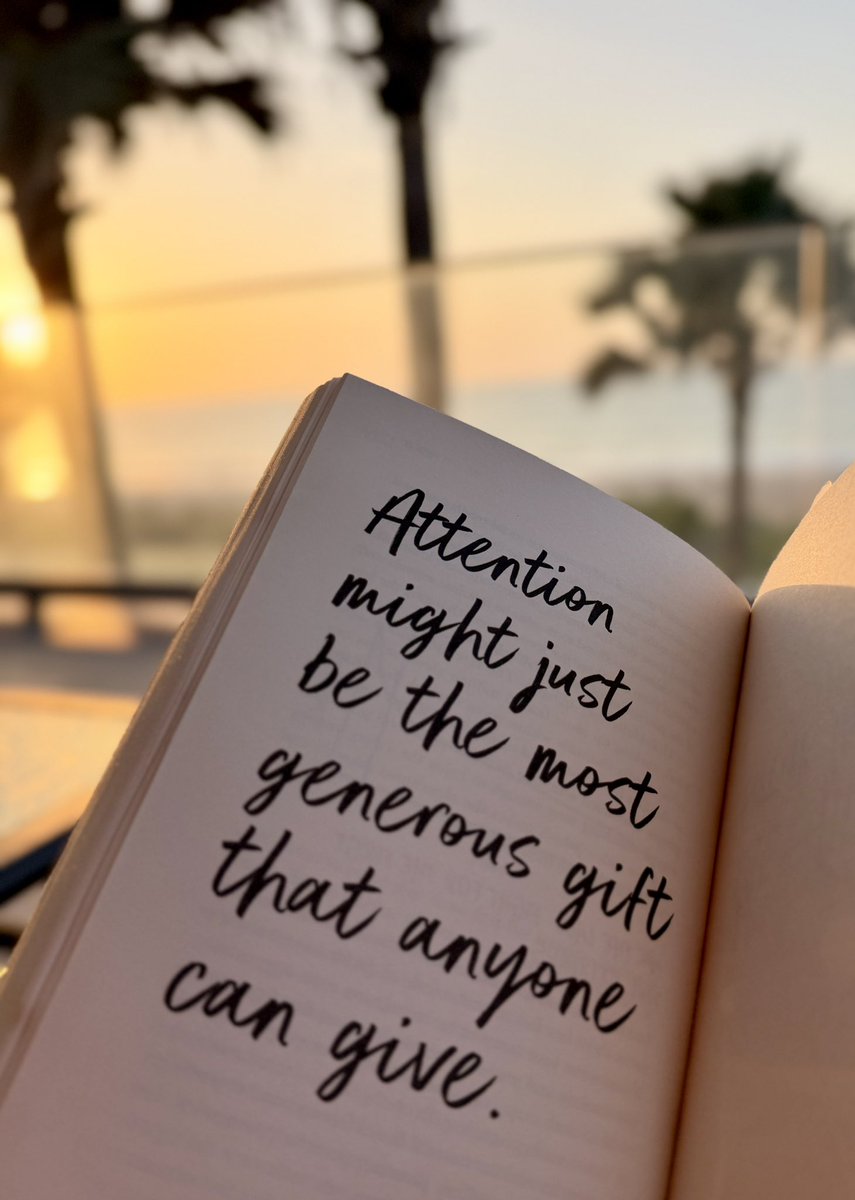 Attention
might just
be the most
generous gift
that anyone
can give.